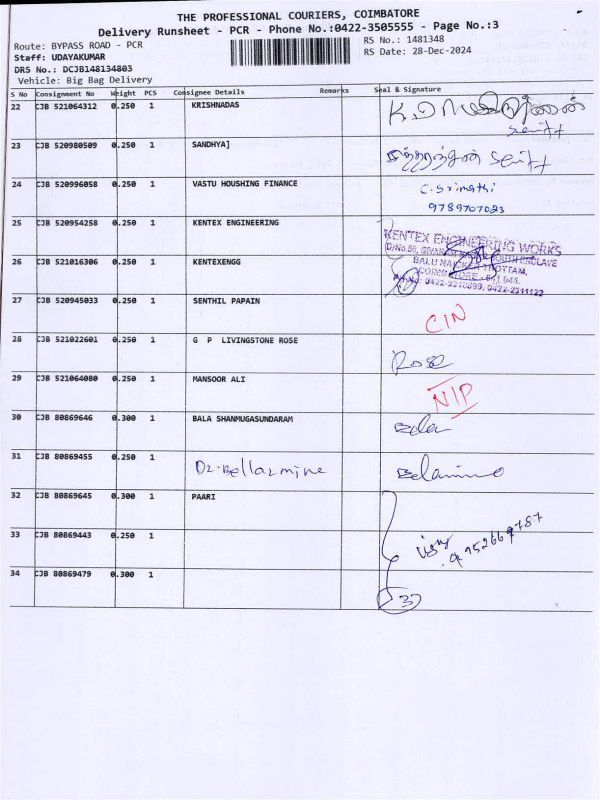 THE PROFESSIONAL COURIERS, COIMBATORE
Delivery Runsheet - PCR - Phone No.:0422-3505555 - Page No.:3
Route: BYPASS ROAD - PCR RS No.: 1481348
Staff: UDAYAKUMAR RS Date: 28-Dec-2024
DRS No.: DCJB148134803
Vehicle: Big Bag Delivery
S No Consignment No Weight PCS Consignee Details Remarks Seal & Signature
22 CJB 521064312 0.250 1 KRISHNADAS
23 CJB 520980509 0.250 1 SANDHYA]
24 CJB 520996058 0.250 1 VASTU HOUSHING FINANCE C. Srimathi
9789707023
25 CJB 520954258 0.250 1 KENTEX ENGINEERING
KENTEX ENGINEERING WORKS
26 CJB 521016306 0.250 1 KENTEXENGG
27 CJB 520945033 0.250 1 SENTHIL PAPAIN
CIN
28 CJB 521022601 0.250 1 G P LIVINGSTONE ROSE
Rose
29 CJB 521064080 0.250 1 MANSOOR ALI
NIP
30 CJB 80869646 0.300 1 BALA SHANMUGASUNDARAM
Bala
31 CJB 80869455 0.250 1 Dr. Bellarmine
32 CJB 80869645 0.300 1 PAARI
33 CJB 80869443 0.250 1
34 CJB 80869479 0.300 1
3